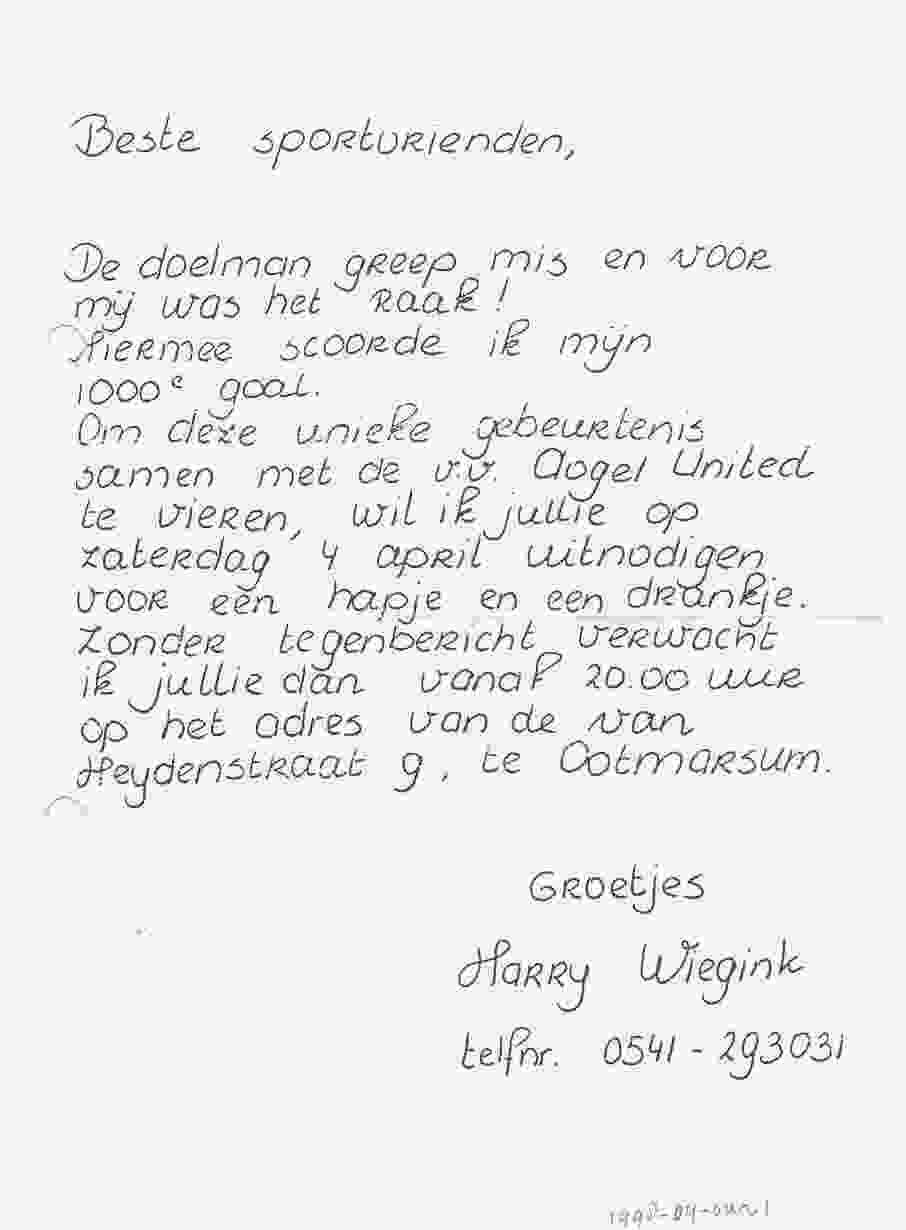 Beste sportvrienden,
De doelman greep mis en voor
mij was het raak!
Hiermee scoorde ik mijn
1000e goal.
Om deze unieke gebeurtenis
samen met de v.v. Aogel United
te vieren, wil ik jullie op
zaterdag 4 april uitnodigen
voor een hapje en een drankje.
Zonder tegenbericht verwacht
ik jullie dan vanaf 20.00 uur
op het adres van de van
Heydenstraat 9, te Ootmarsum.
Groetjes
Harry Wiegink
telfnr. 0541-293031